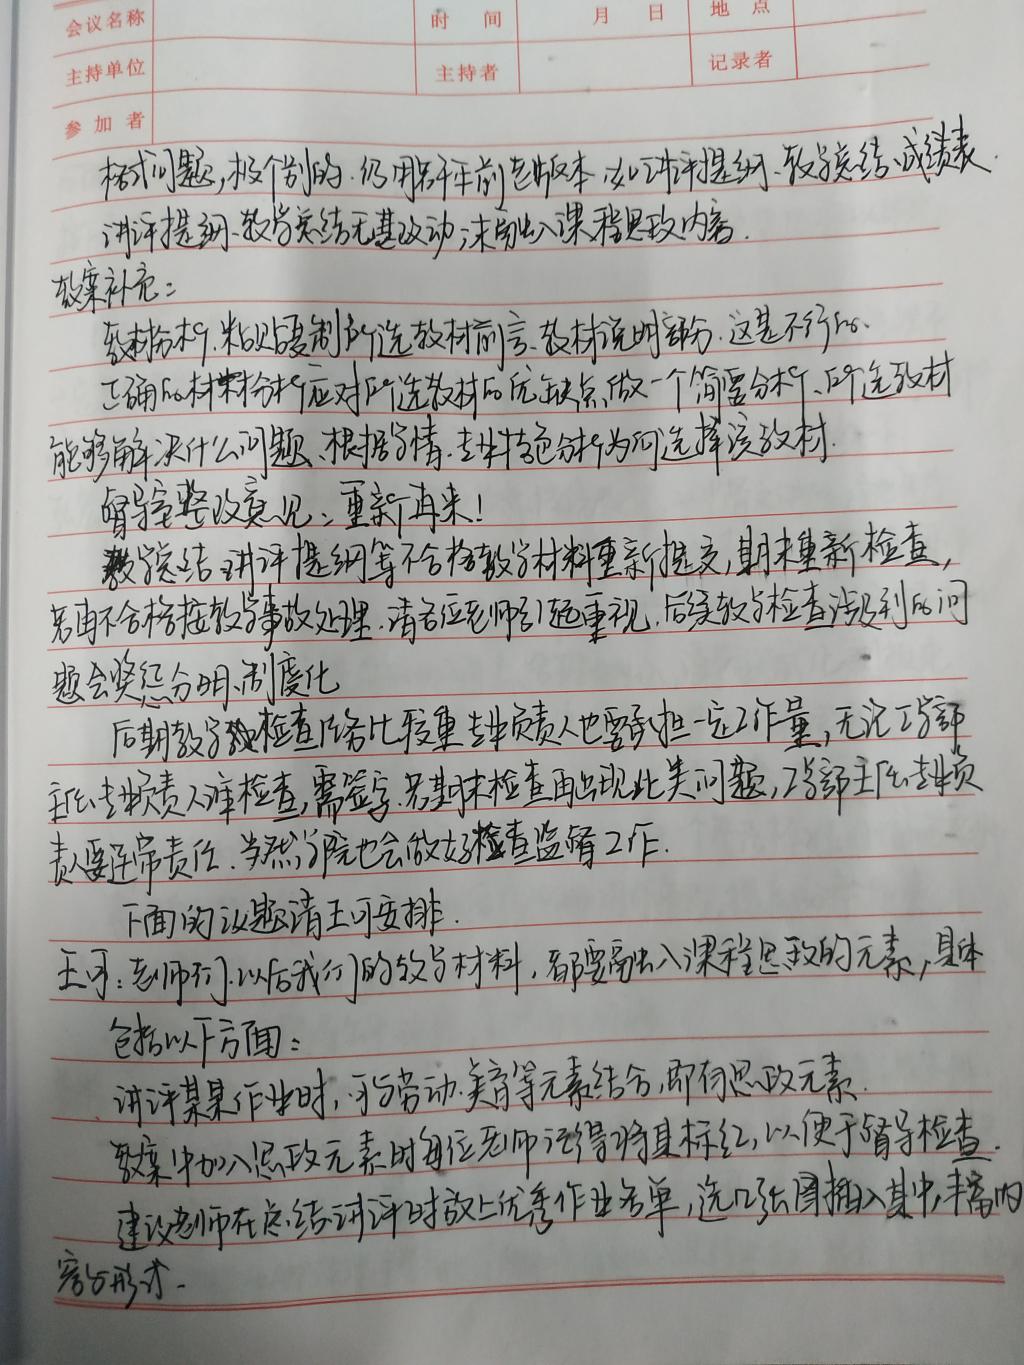 会议名称 时间 月 日 地点
主持单位 主持者 记录者
参加者
格式问题,极个别的仍用若干年前老版本 如讲评提纲、教学总结、成绩表.
讲评提纲、教学总结无甚改动,未融入课程思政内容.
教案补充:
教材分析.粘贴复制所选教材前言、教材说明部分.这是不行的.
正确的教材分析应对所选教材的优缺点做一个简要分析、所选教材
能够解决什么问题、根据学情.专业特色分析为何选择该教材.
督导室整改意见:重新再来!
教学总结、讲评提纲等不合格教学材料重新提交,期末重新检查,
若再不合格按教学事故处理.请各位老师引起重视.后续教学检查涉及到的问
题会奖惩分明、制度化
后期教学检查任务比较重 专业负责人也要承担一定工作量,无论工学部
主任、专业负责人谁检查,需签字.若期末检查再出现此类问题,工学部主任、专业负
责人要连带责任.当然学院也会做好检查监督工作.
下面的议题请王可安排.
王可:老师们.以后我们的教学材料,都要融入课程思政的元素,具体
包括以下方面:
讲评某某作业时,可与劳动、美育等元素结合,即有思政元素.
教案中加入思政元素时每位老师记得将其标红,以便于督导检查.
建议老师在总结、讲评时放上优秀作业名单,选几张图插入其中,丰富内
容与形式.